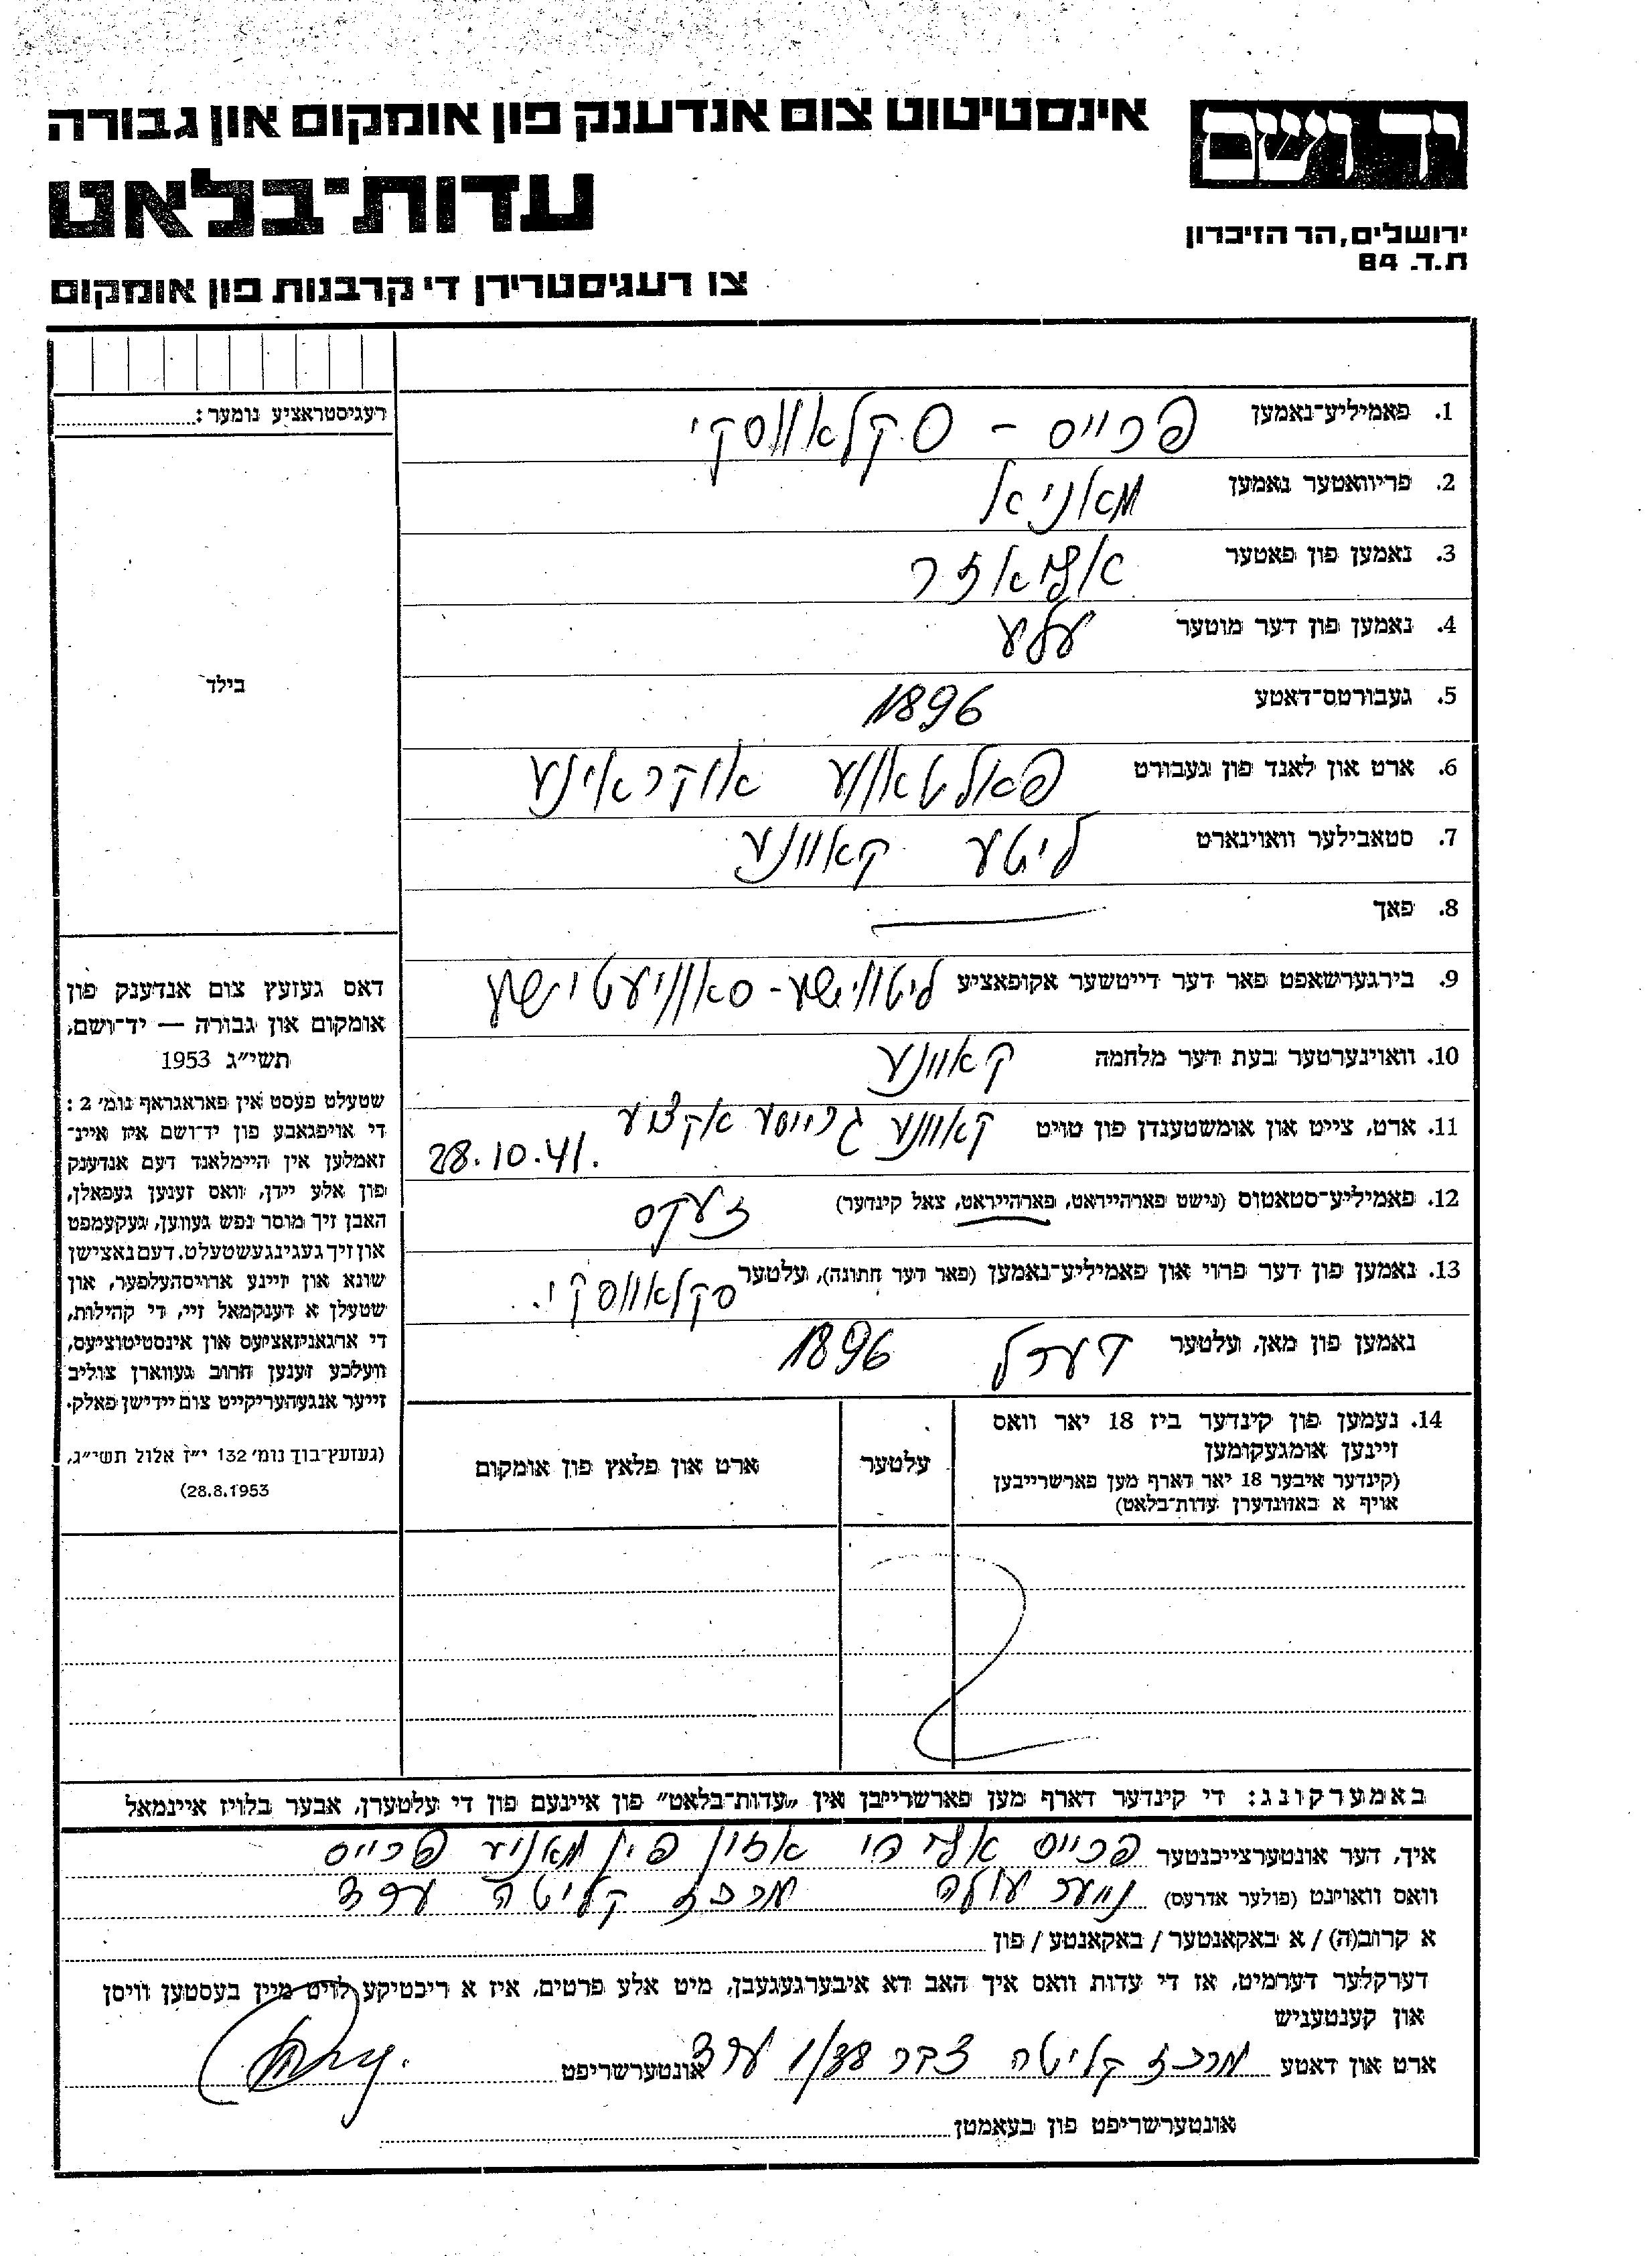 אינסטיטוט צום אנדענק פון אומקום און גבורה
יד ושם
עדות־בלאט
ירושלים, הר הזיכרון
ת.ד. 84
צו רעגיסטרירן די קרבנות פון אומקום
רעגיסטראציע נומער:
בילד
1. פאמיליע־נאמען פרייס - סקלאווסקי
2. פריוואטער נאמען מאניא
3. נאמען פון פאטער
4. נאמען פון דער מוטער עלע
5. געבורטס־דאטע 1896
6. ארט און לאנד פון געבורט פאלטאווע אוקראינע
7. סטאבילער וואוינארט ליטע קאוונע
8. פאך
9. בירגערשאפט פאר דער דייטשער אקופאציע ליטווישע - סאוויעטישע
10. וואוינערטער בעת דער מלחמה קאוונע
11. ארט, צייט און אומשטענדן פון טויט קאוונע גרויסע אקציע
28.10.41.
12. פאמיליע־סטאטוס (נישט פארהייראט, פארהייראט, צאל קינדער) זעקס
13. נאמען פון דער פרוי און פאמיליע־נאמען (פאר דער חתונה), עלטער סקלאווסקי.
נאמען פון מאן, ועלטער 1896
14. נעמען פון קינדער ביז 18 יאר וואס
זיינען אומגעקומען
(קינדער איבער 18 יאר דארף מען פארשרייבען
אויף א באזונדערן עדות־בלאט)
עלטער
ארט און פלאץ פון אומקום
דאס געזעץ צום אנדענק פון
אומקום און גבורה — יד־ושם,
תשי״ג 1953
שטעלט פעסט אין פאראגראף נומ׳ 2:
די אויפגאבע פון יד־ושם איז איינ־
זאמלען אין היימלאנד דעם אנדענק
פון אלע יידן, וואס זענען געפאלן,
האבן זיך מוסר נפש געווען, געקעמפט
און זיך געגינגעשטעלט. דעם נאצישן
שונא און זיינע ארויסהעלפער, און
שטעלן א דענקמאל זיי, די קהילות,
די ארגאניזאציעס און אינסטיטוציעס,
וועלכע זענען חרוב געווארן צוליב
זייער אנגעהעריקייט צום יידישן פאלק.
(געזעץ־בוך נומ׳ 132 י״ז אלול תשי״ג,
28.8.1953)
באמערקונג: די קינדער דארף מען פארשרייבן אין „עדות־בלאט״ פון איינעם פון די עלטערן, אבער בלויז איינמאל
איך, דער אונטערצייכנטער פרייס א זון פון מאניע פרייס
וואס וואוינט (פולער אדרעס) עולה מרכז קליטה ערד
א קרוב(ה) / א באקאנטער / באקאנטע / פון
דערקלער דערמיט, אז די עדות וואס איך האב דא איבערגעגעבן, מיט אלע פרטים, איז א ריכטיקע לויט מיין בעסטען וויסן
און קענטעניש
ארט און דאטע מרכז קליטה צבר 1/38 ערד אונטערשריפט
אונטערשריפט פון בעאמטן